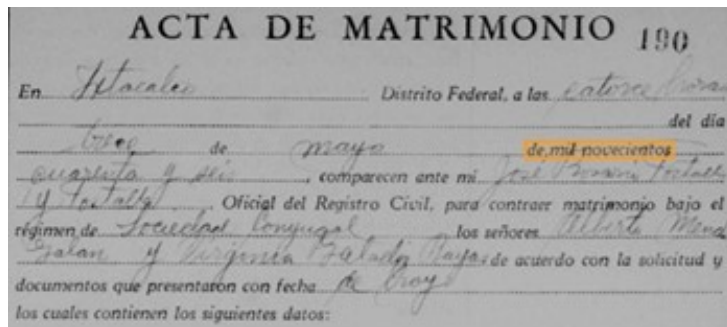 ACTA DE MATRIMONIO 190
En Iztacalco Distrito Federal, a las catorce horas
del día
trece de mayo de mil novecientos
cuarenta y seis, comparecen ante mi José
y Oficial del Registro Civil, para contraer matrimonio bajo el
régimen de Sociedad Conyugal los señores Alberto
Galan y Virginia de acuerdo con la solicitud y
documentos que presentaron con fecha de hoy
los cuales contienen los siguientes datos: